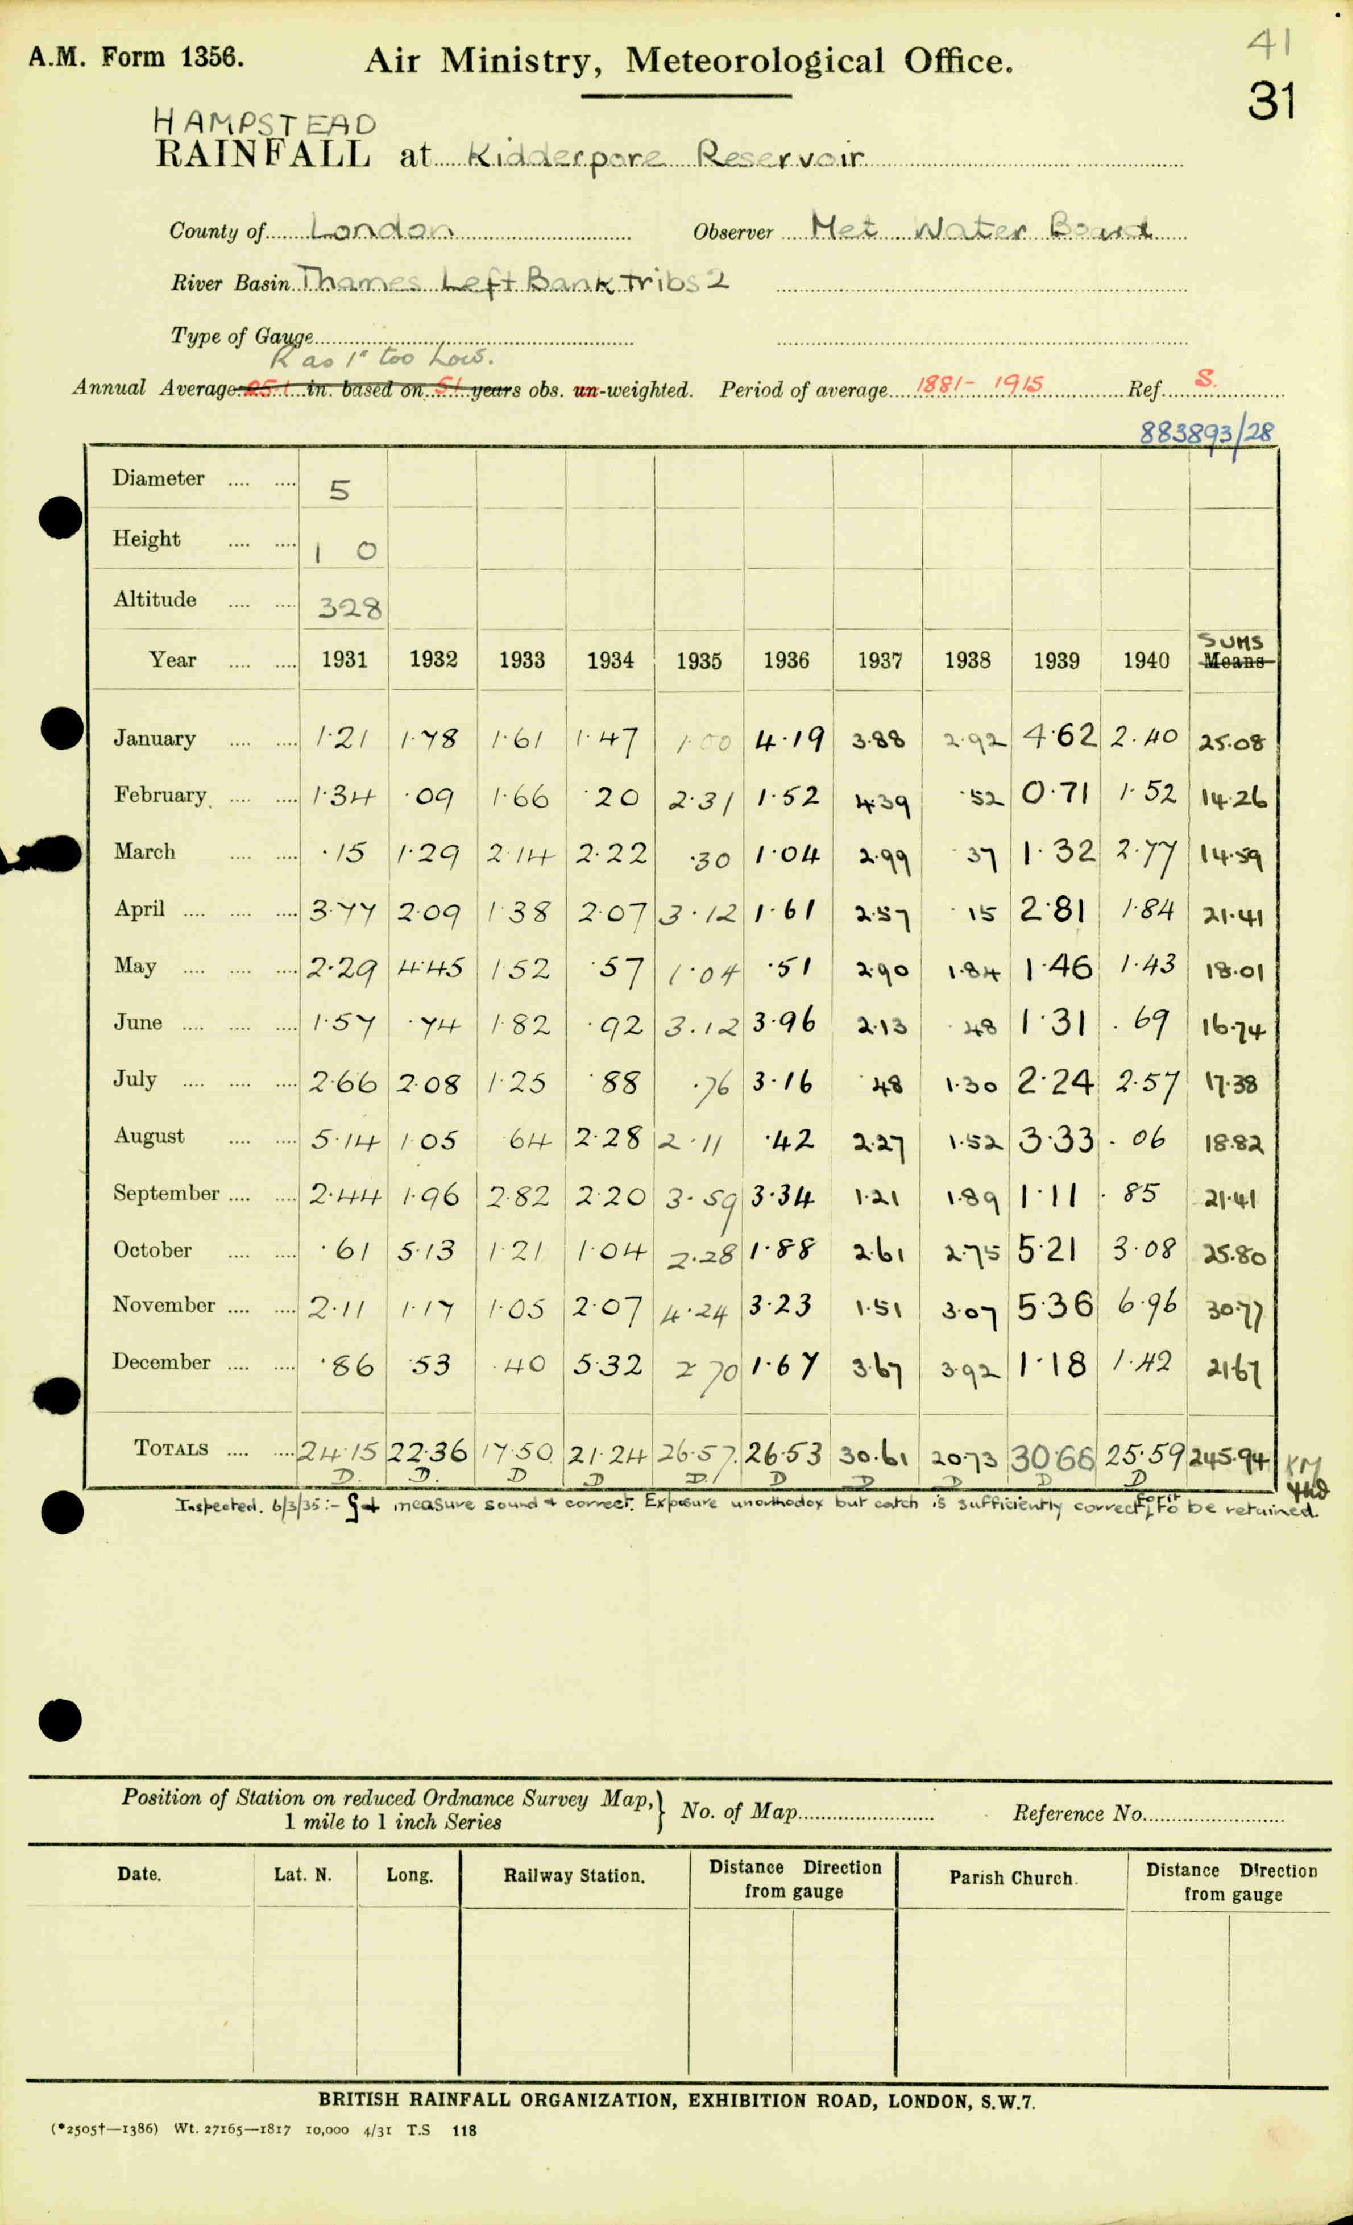 41
A.M. Form 1356. Air Ministry, Meteorological Office.
31
HAMPSTEAD
RAINFALL at Kidderpore Reservoir
County of London Observer Met Water Board
River Basin Thames Left Bank Tribs 2
Type of Gauge
R as 1" too Low.
Annual Average 25.1 in. based on 51 years obs. un-weighted. Period of average 1881- 1915 Ref. S.
883893/28
Diameter 5
Height 1 0
Altitude 328
SUMS
Year 1931 1932 1933 1934 1935 1936 1937 1938 1939 1940 Means
January 1.21 1.78 1.61 1.47 1.00 4.19 3.88 2.92 4.62 2.40 25.08
February 1.34 .09 1.66 .20 2.31 1.52 4.39 .52 0.71 1.52 14.26
March .15 1.29 2.14 2.22 .30 1.04 2.99 .37 1.32 2.77 14.59
April 3.77 2.09 1.38 2.07 3.12 1.61 2.57 .15 2.81 1.84 21.41
May 2.29 4.45 1.52 .57 1.04 .51 2.90 1.84 1.46 1.43 18.01
June 1.57 .74 1.82 .92 3.12 3.96 2.13 .48 1.31 .69 16.74
July 2.66 2.08 1.25 .88 .76 3.16 .48 1.30 2.24 2.57 17.38
August 5.14 1.05 .64 2.28 2.11 .42 2.27 1.52 3.33 .06 18.82
September 2.44 1.96 2.82 2.20 3.59 3.34 1.21 1.89 1.11 .85 21.41
October .61 5.13 1.21 1.04 2.28 1.88 2.61 2.75 5.21 3.08 25.80
November 2.11 1.17 1.05 2.07 4.24 3.23 1.51 3.07 5.36 6.96 30.77
December .86 .53 .40 5.32 2.70 1.67 3.67 3.92 1.18 1.42 21.67
TOTALS 24.15 22.36 17.50 21.24 26.57 26.53 30.61 20.73 30.66 25.59 245.94
D. D. D D D D D D D D
Inspected. 6/3/35:- measure sound & correct. Exposure unorthodox but catch is sufficiently correct for it to be retained.
Position of Station on reduced Ordnance Survey Map, 1 mile to 1 inch Series No. of Map Reference No.
Date. Lat. N. Long. Railway Station. Distance Direction from gauge Parish Church. Distance Direction from gauge
BRITISH RAINFALL ORGANIZATION, EXHIBITION ROAD, LONDON, S.W.7.
(*2505†—1386) Wt. 27165—1817 10,000 4/31 T.S 118